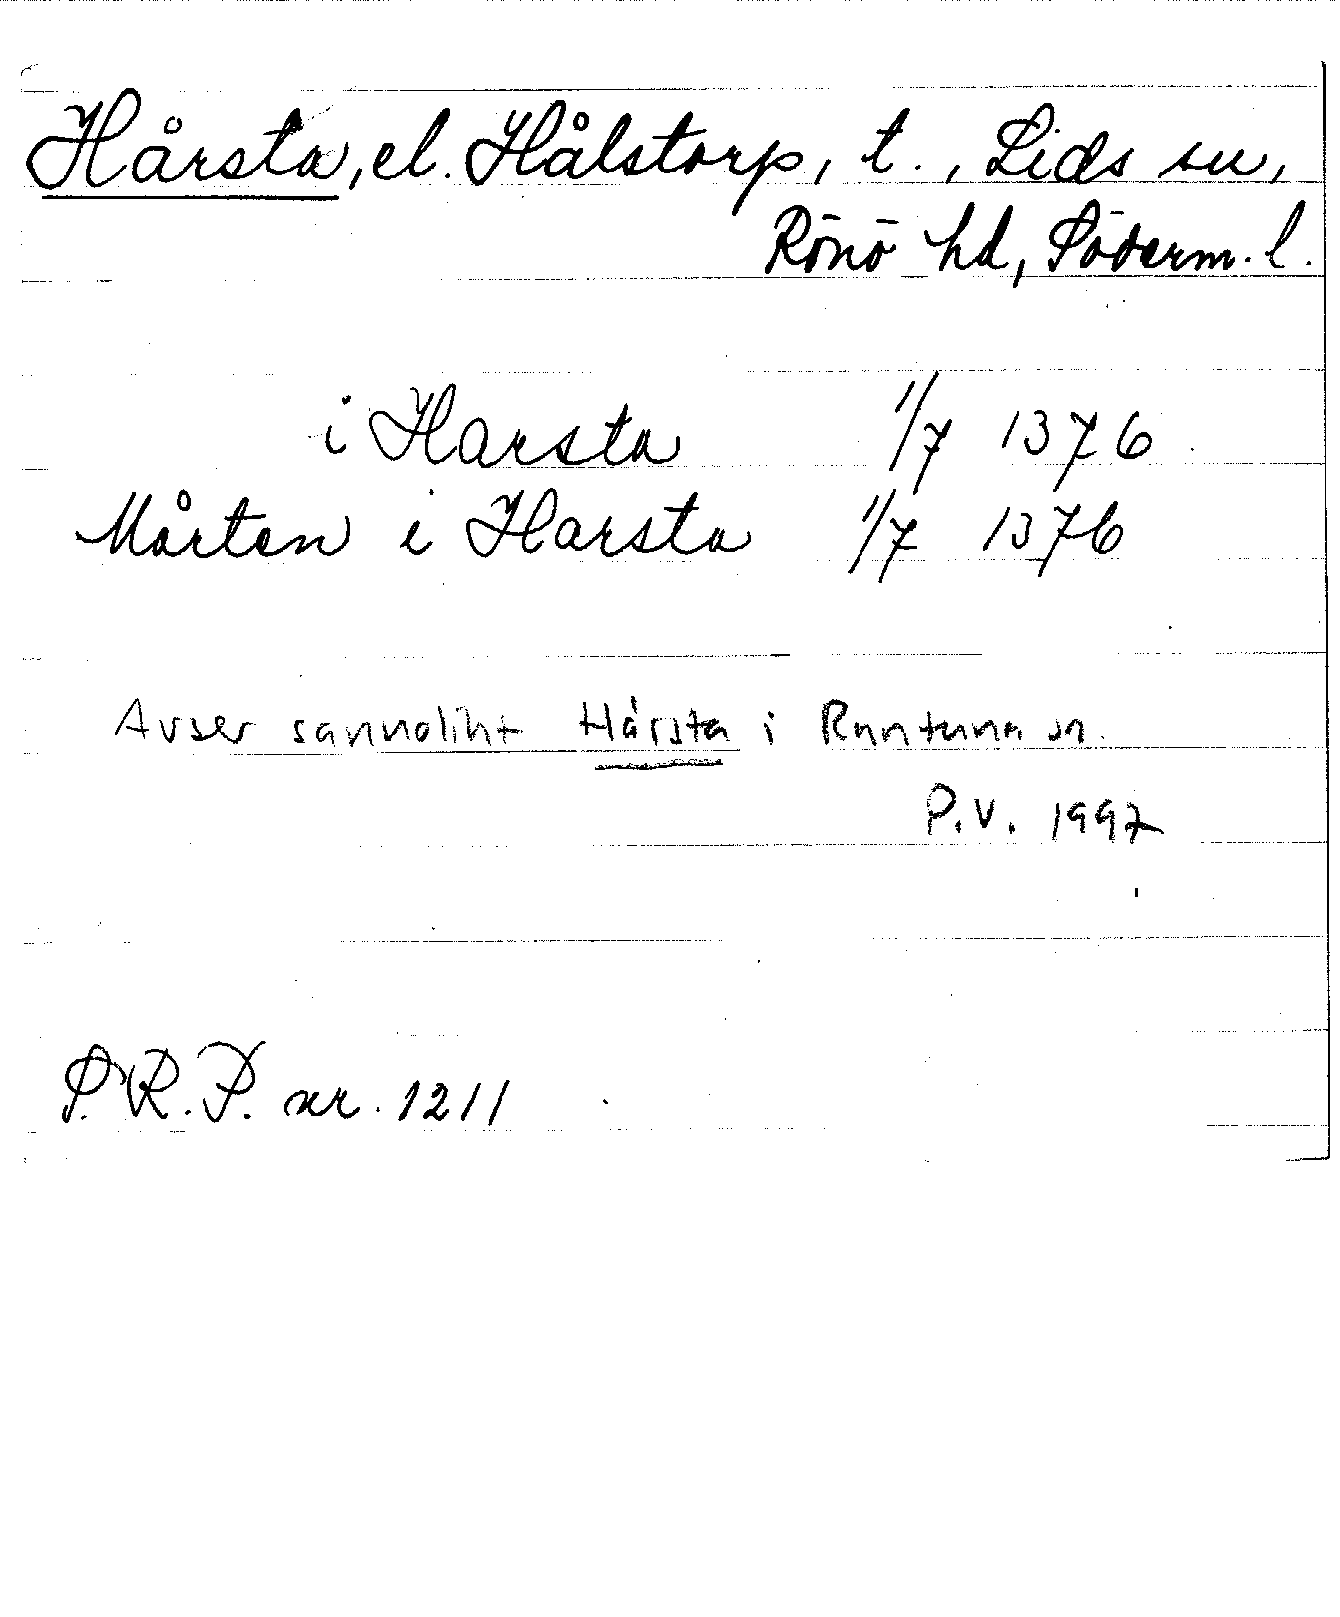 Hårsta, el. Hålstorp, t., Lids sn,
Rönö hd, Söderm. l.
i Harsta 1/7 1376
Mårten i Harsta 1/7 1376
Avser sannolikt Hårsta i Runtuna sn.
P.V. 1997
S.R.P. nr. 1211